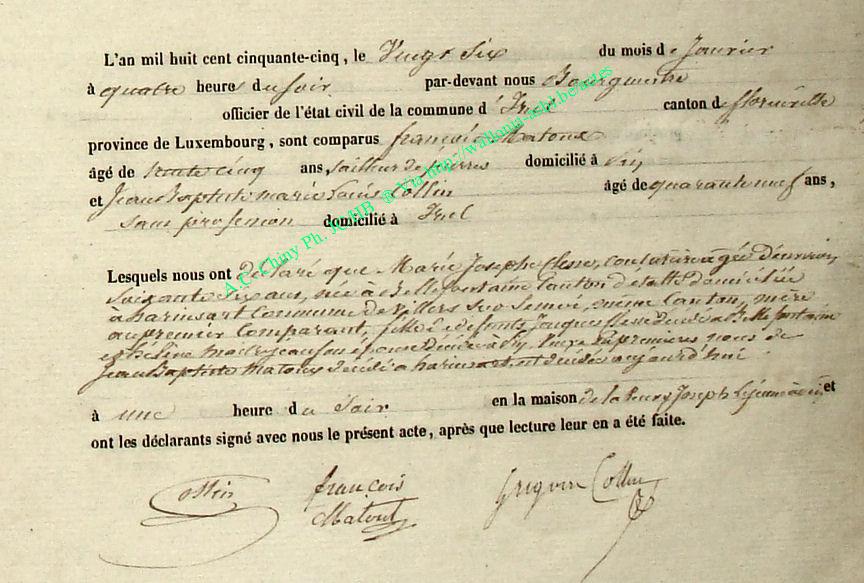 L'an mil huit cent cinquante-cinq, le Vingt Six du mois de Janvier
à quatre heures du soir par-devant nous Bourgmestre
officier de l'état civil de la commune d'Izel canton de florenville
province de Luxembourg, sont comparus françois Matoux
âgé de trente cinq ans, tailleur de pierres domicilié à Pin
et Jean Baptiste marie Louis Collin âgé de quarante neuf ans,
sans profession domicilié à Izel
Lesquels nous ont déclaré que Marie Joseph couturière agée d'environ
Soixante Six ans, née à Bellefontaine Canton d'étalle domiciliée
à harinsart Commune de Villers Sur Semois, même Canton, mère
au premier Comparant, fille de defunts Jacques décédé à Bellefontaine
et hélène décédée à Pin, en premières noces de
Jean Baptiste Matoux décédé à harinsart est décédée aujourd'hui
à une heure du Soir en la maison de la Joseph Lejeune à et
ont les déclarants signé avec nous le présent acte, après que lecture leur en a été faite.
Collin françois Matoux Grégoire Collin
A.C. Chiny Ph. JC HB ® Via http://wallonia-asbl.be/actes